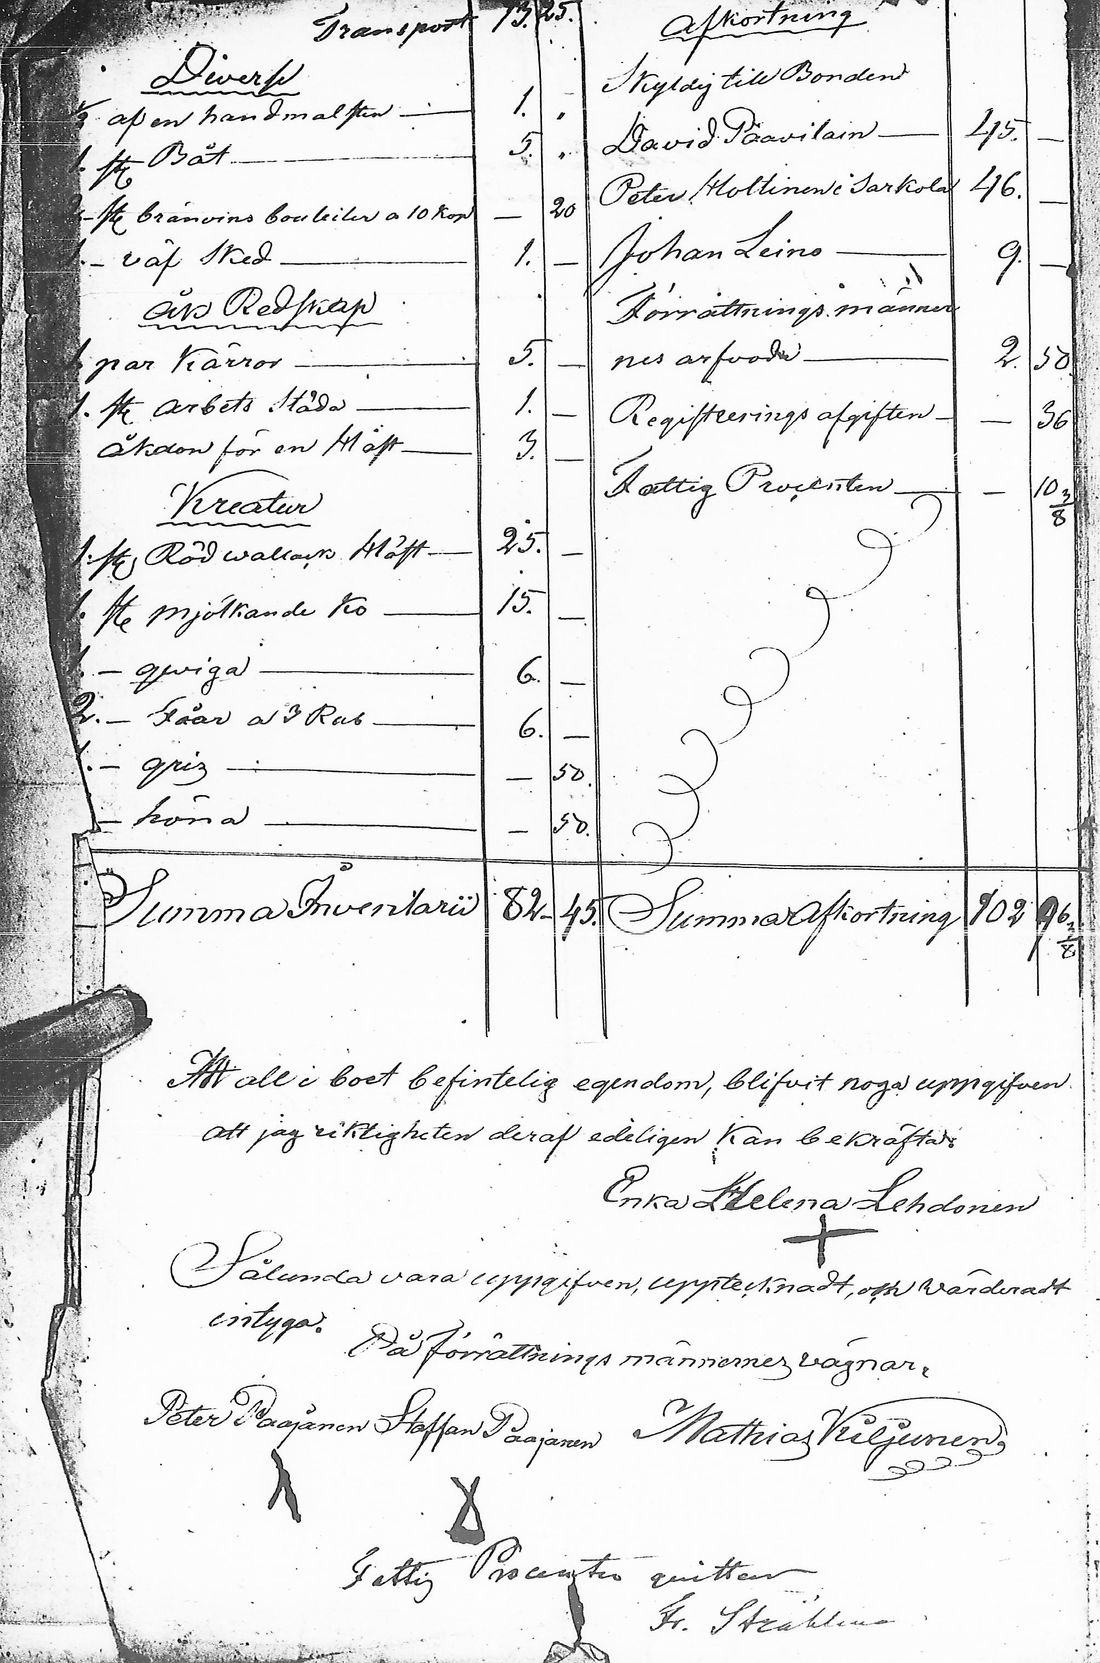 Transport 13. 25.
Diverse
½ af en handmalsten 1. "
1. st. Båt 5. "
2 st. bränvins bouteiler a 10 kop — 20
1. — väf Sked 1. —
åk Redskap
1. par Kärror 5. —
1. st. arbets Släda 1. —
åkdon för en Häst 3. —
Kreatur
1. st. Röd wallack Häst 25. —
1. st. mjölkande Ko 15. —
1. — qwiga 6. —
2. — Fåar a 3 Rub 6. —
1. — gris — 50.
— höna — 50.
Summa Inventarii 82 - 45.
Afkortning
Skyldig till Bonden
David Paavilain 45. —
Peter Holtinen i Sarkola 46. —
Johan Leino 9. —
Förrättnings männer
nes arfvode 2. 50
Registrerings afgiften — 36
Fattig Procenten — 10 3/8
Summa Afkortning 102 96 3/8
Att all i boet befintelig egendom, blifvit noga uppgifven
att jag riktigheten deraf edeligen kan bekräfta:
Enka Helena Lehdonen
Sålunda vara uppgifven, upptecknadt, och Värderadt
intyga.
På förrättnings männernes vägnar.
Peter Paajanen Staffan Paajanen Mathias Kiljunen
Fattig Procenten quitteras
Fr. Stråhlman